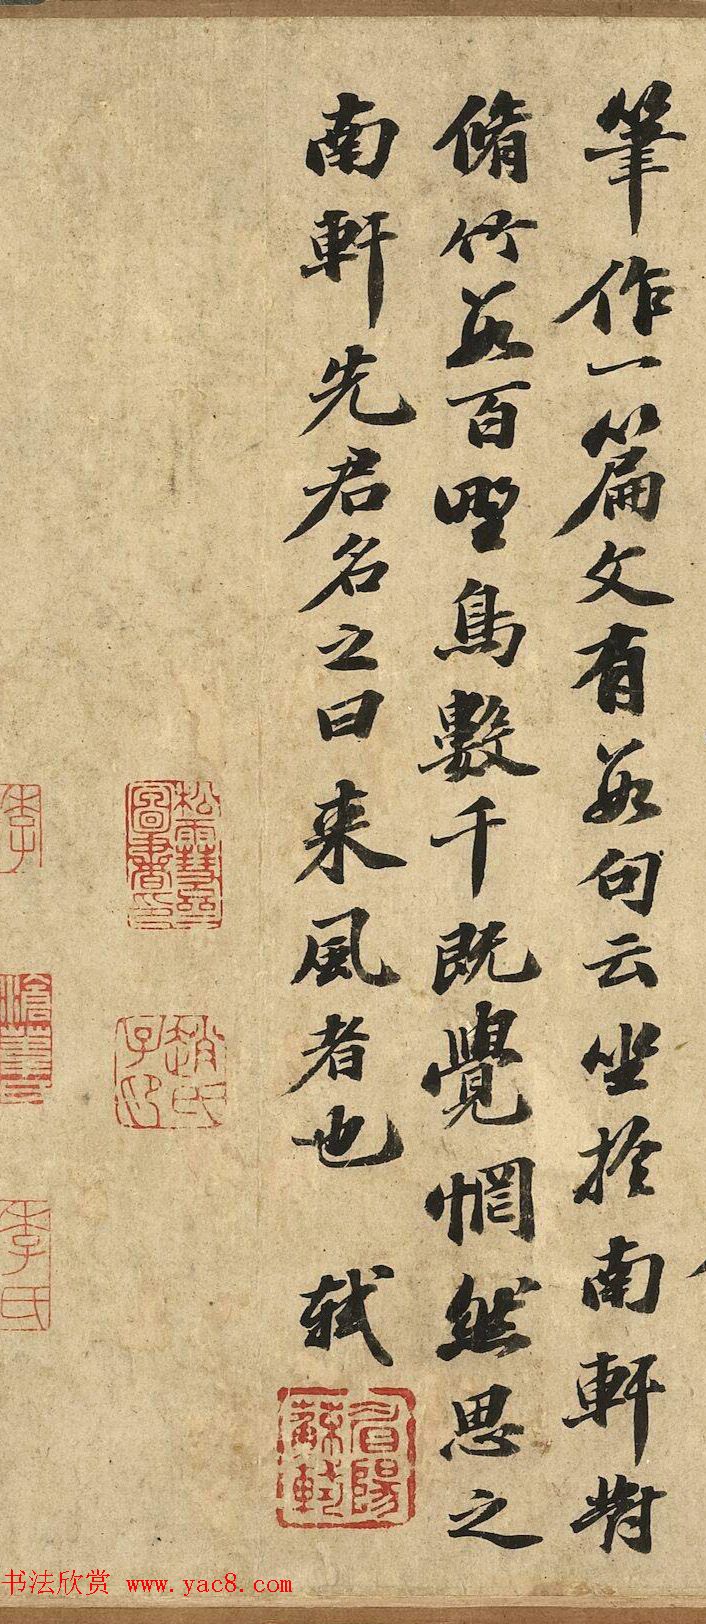 筆作一篇文有數句云坐於南軒對
脩竹數百野鳥數千既覺惘然思之
南軒先君名之曰来風者也　軾
眉陽蘇軾
趙氏子印
李氏
书法欣赏 www.yac8.com